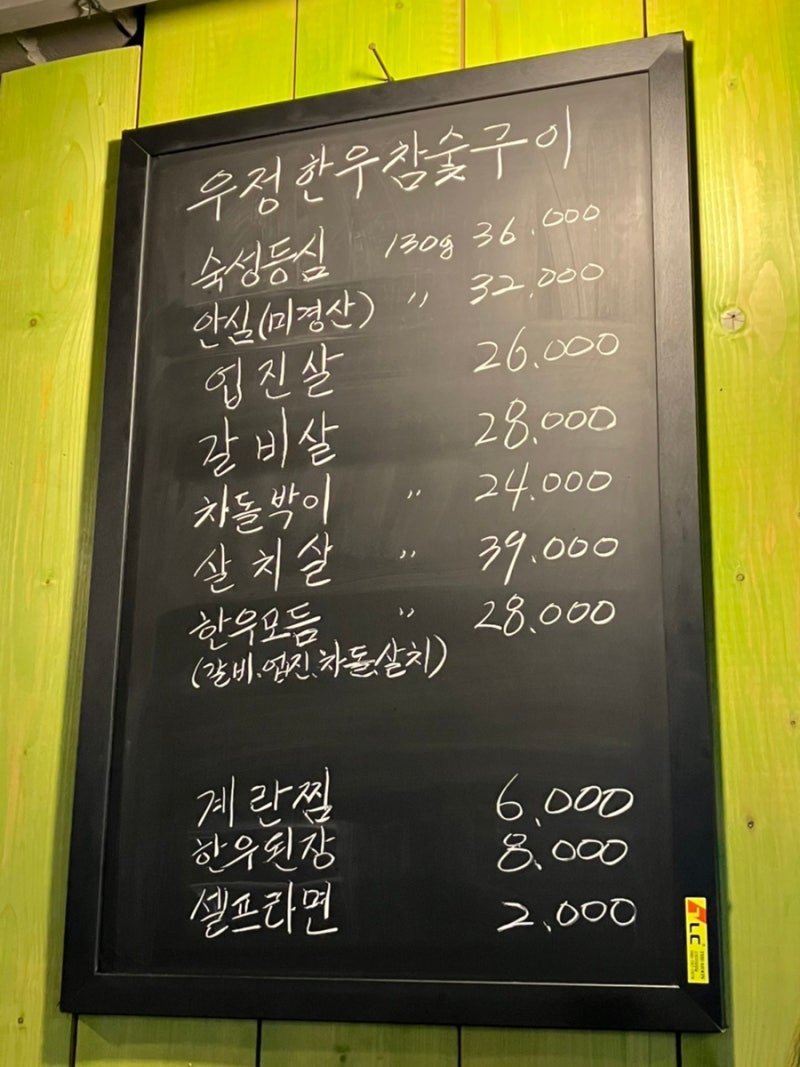 우정한우참숯구이
숙성등심 130g 36.000
안심(미경산) 〃 32.000
업진살 26.000
갈비살 28.000
차돌박이 〃 24.000
살치살 〃 39.000
한우모듬 〃 28.000
(갈비.업진.차돌.살치)
계란찜 6.000
한우된장 8.000
셀프라면 2.000
LC